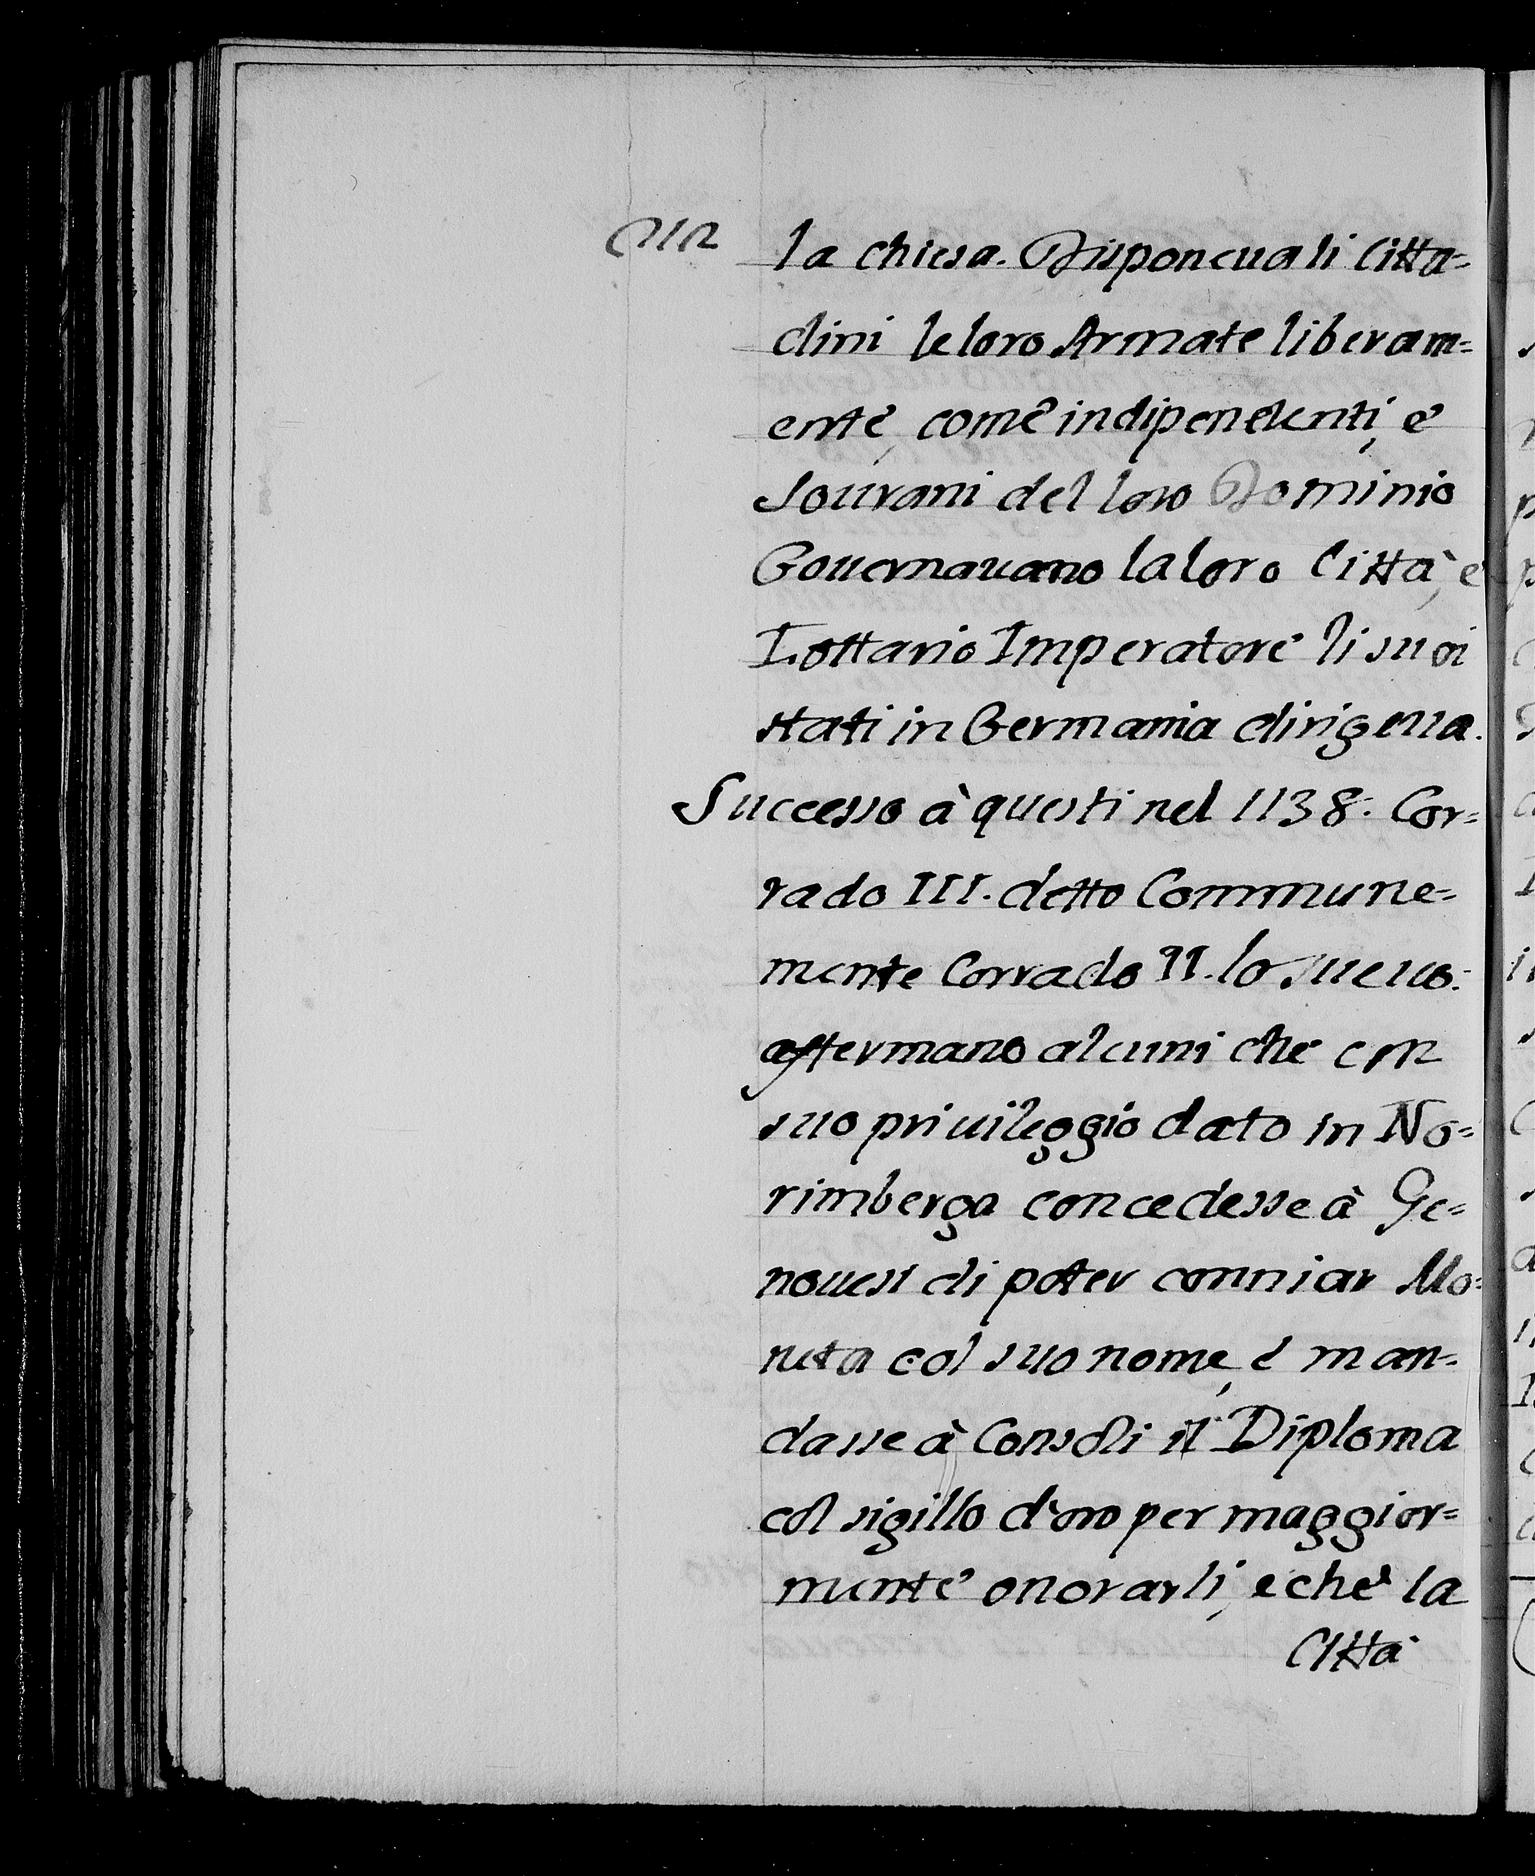 212
la chiesa. Disponeua li Citta=
dini le loro Armate liberam=
ente, come indipendenti, e
Sourani del loro Dominio
Gouernauano la loro Città, e
Lottario Imperatore li suoi
stati in Germania dirigeua.
Successo à questi nel 1138. Cor=
rado III. detto Commune=
mente Corrado II. lo sueuo.
affermano alcuni che con
suo priuileggio dato in No=
rimberga concedesse à Ge=
nouesi di poter conniar Mo=
neta col suo nome, e man=
dasse à Consoli il Diploma
col sigillo d'oro per maggior=
mente onorarli, e che la
Città